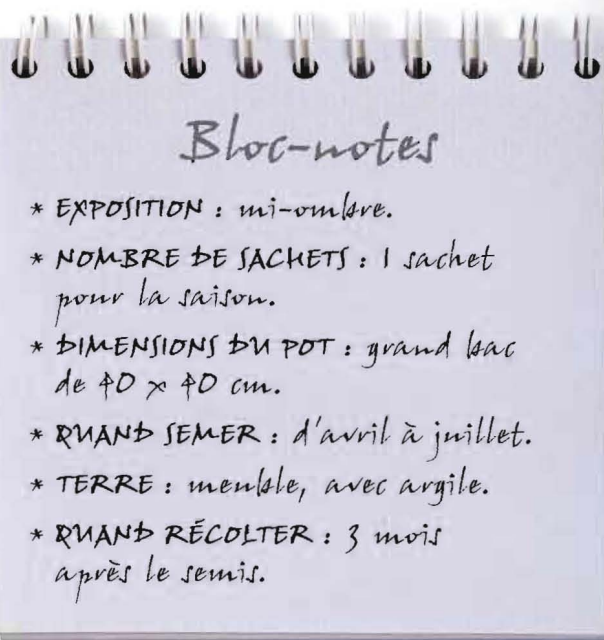 Bloc-notes
* EXPOSITION : mi-ombre.
* NOMBRE DE SACHETS : 1 sachet
pour la saison.
* DIMENSIONS DU POT : grand bac
de 40 x 40 cm.
* QUAND SEMER : d'avril à juillet.
* TERRE : meuble, avec argile.
* QUAND RÉCOLTER : 3 mois
après le semis.